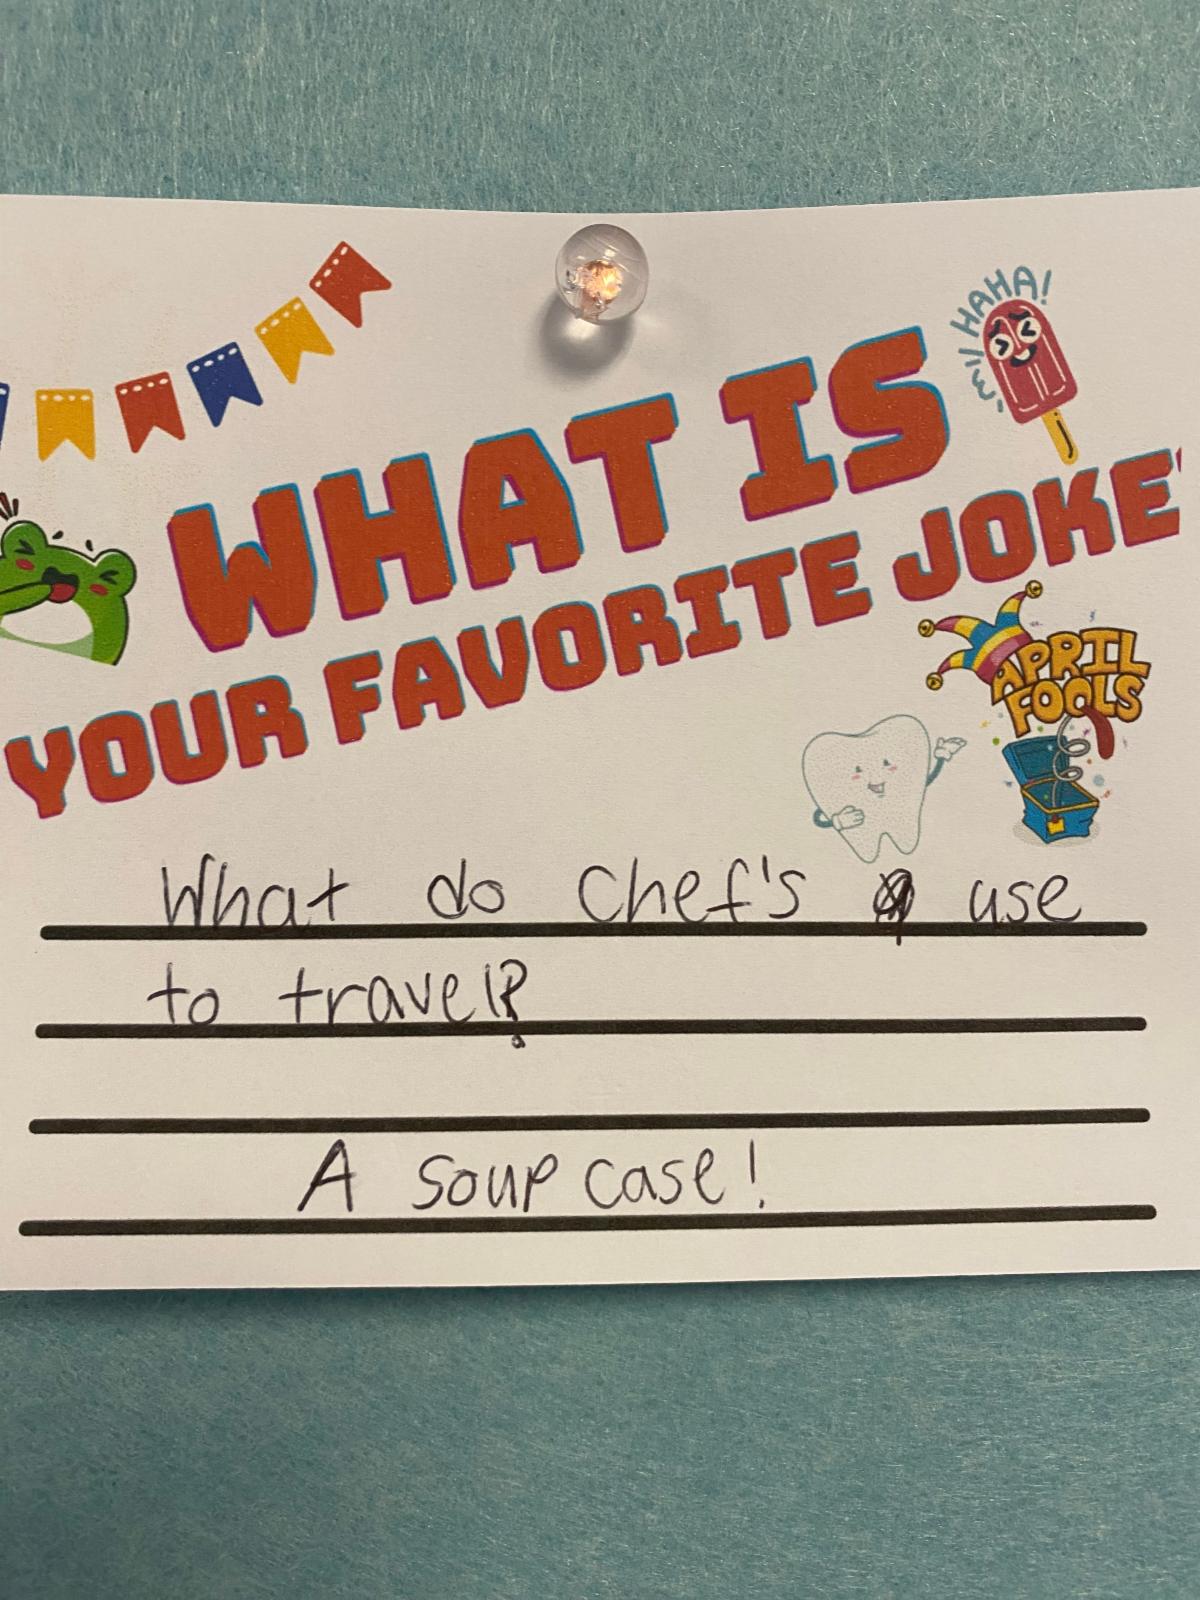 HAHA!
WHAT IS
YOUR FAVORITE JOKE?
APRIL
FOOLS
What do chef's use
to travel?
A soup case!